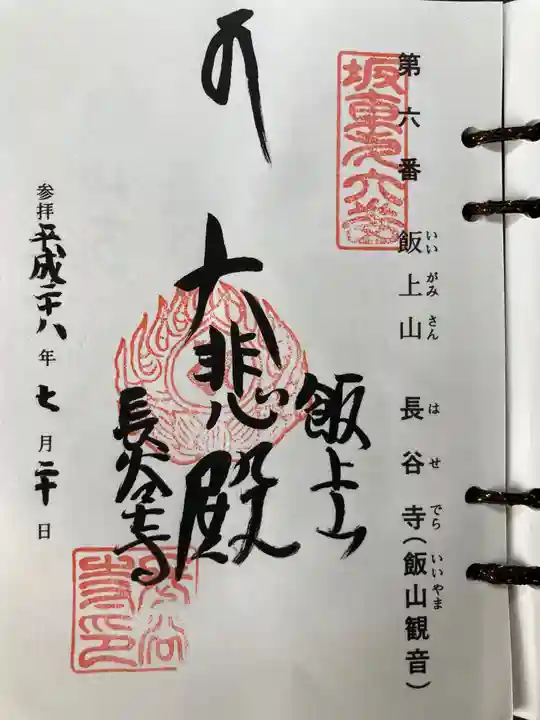 第六番 飯上山 長谷寺(飯山観音)
いいがみさん はせでら いいやま
坂東第六番
飯上山
大悲殿
長谷寺
参拝 平成二十八年 七月二十日